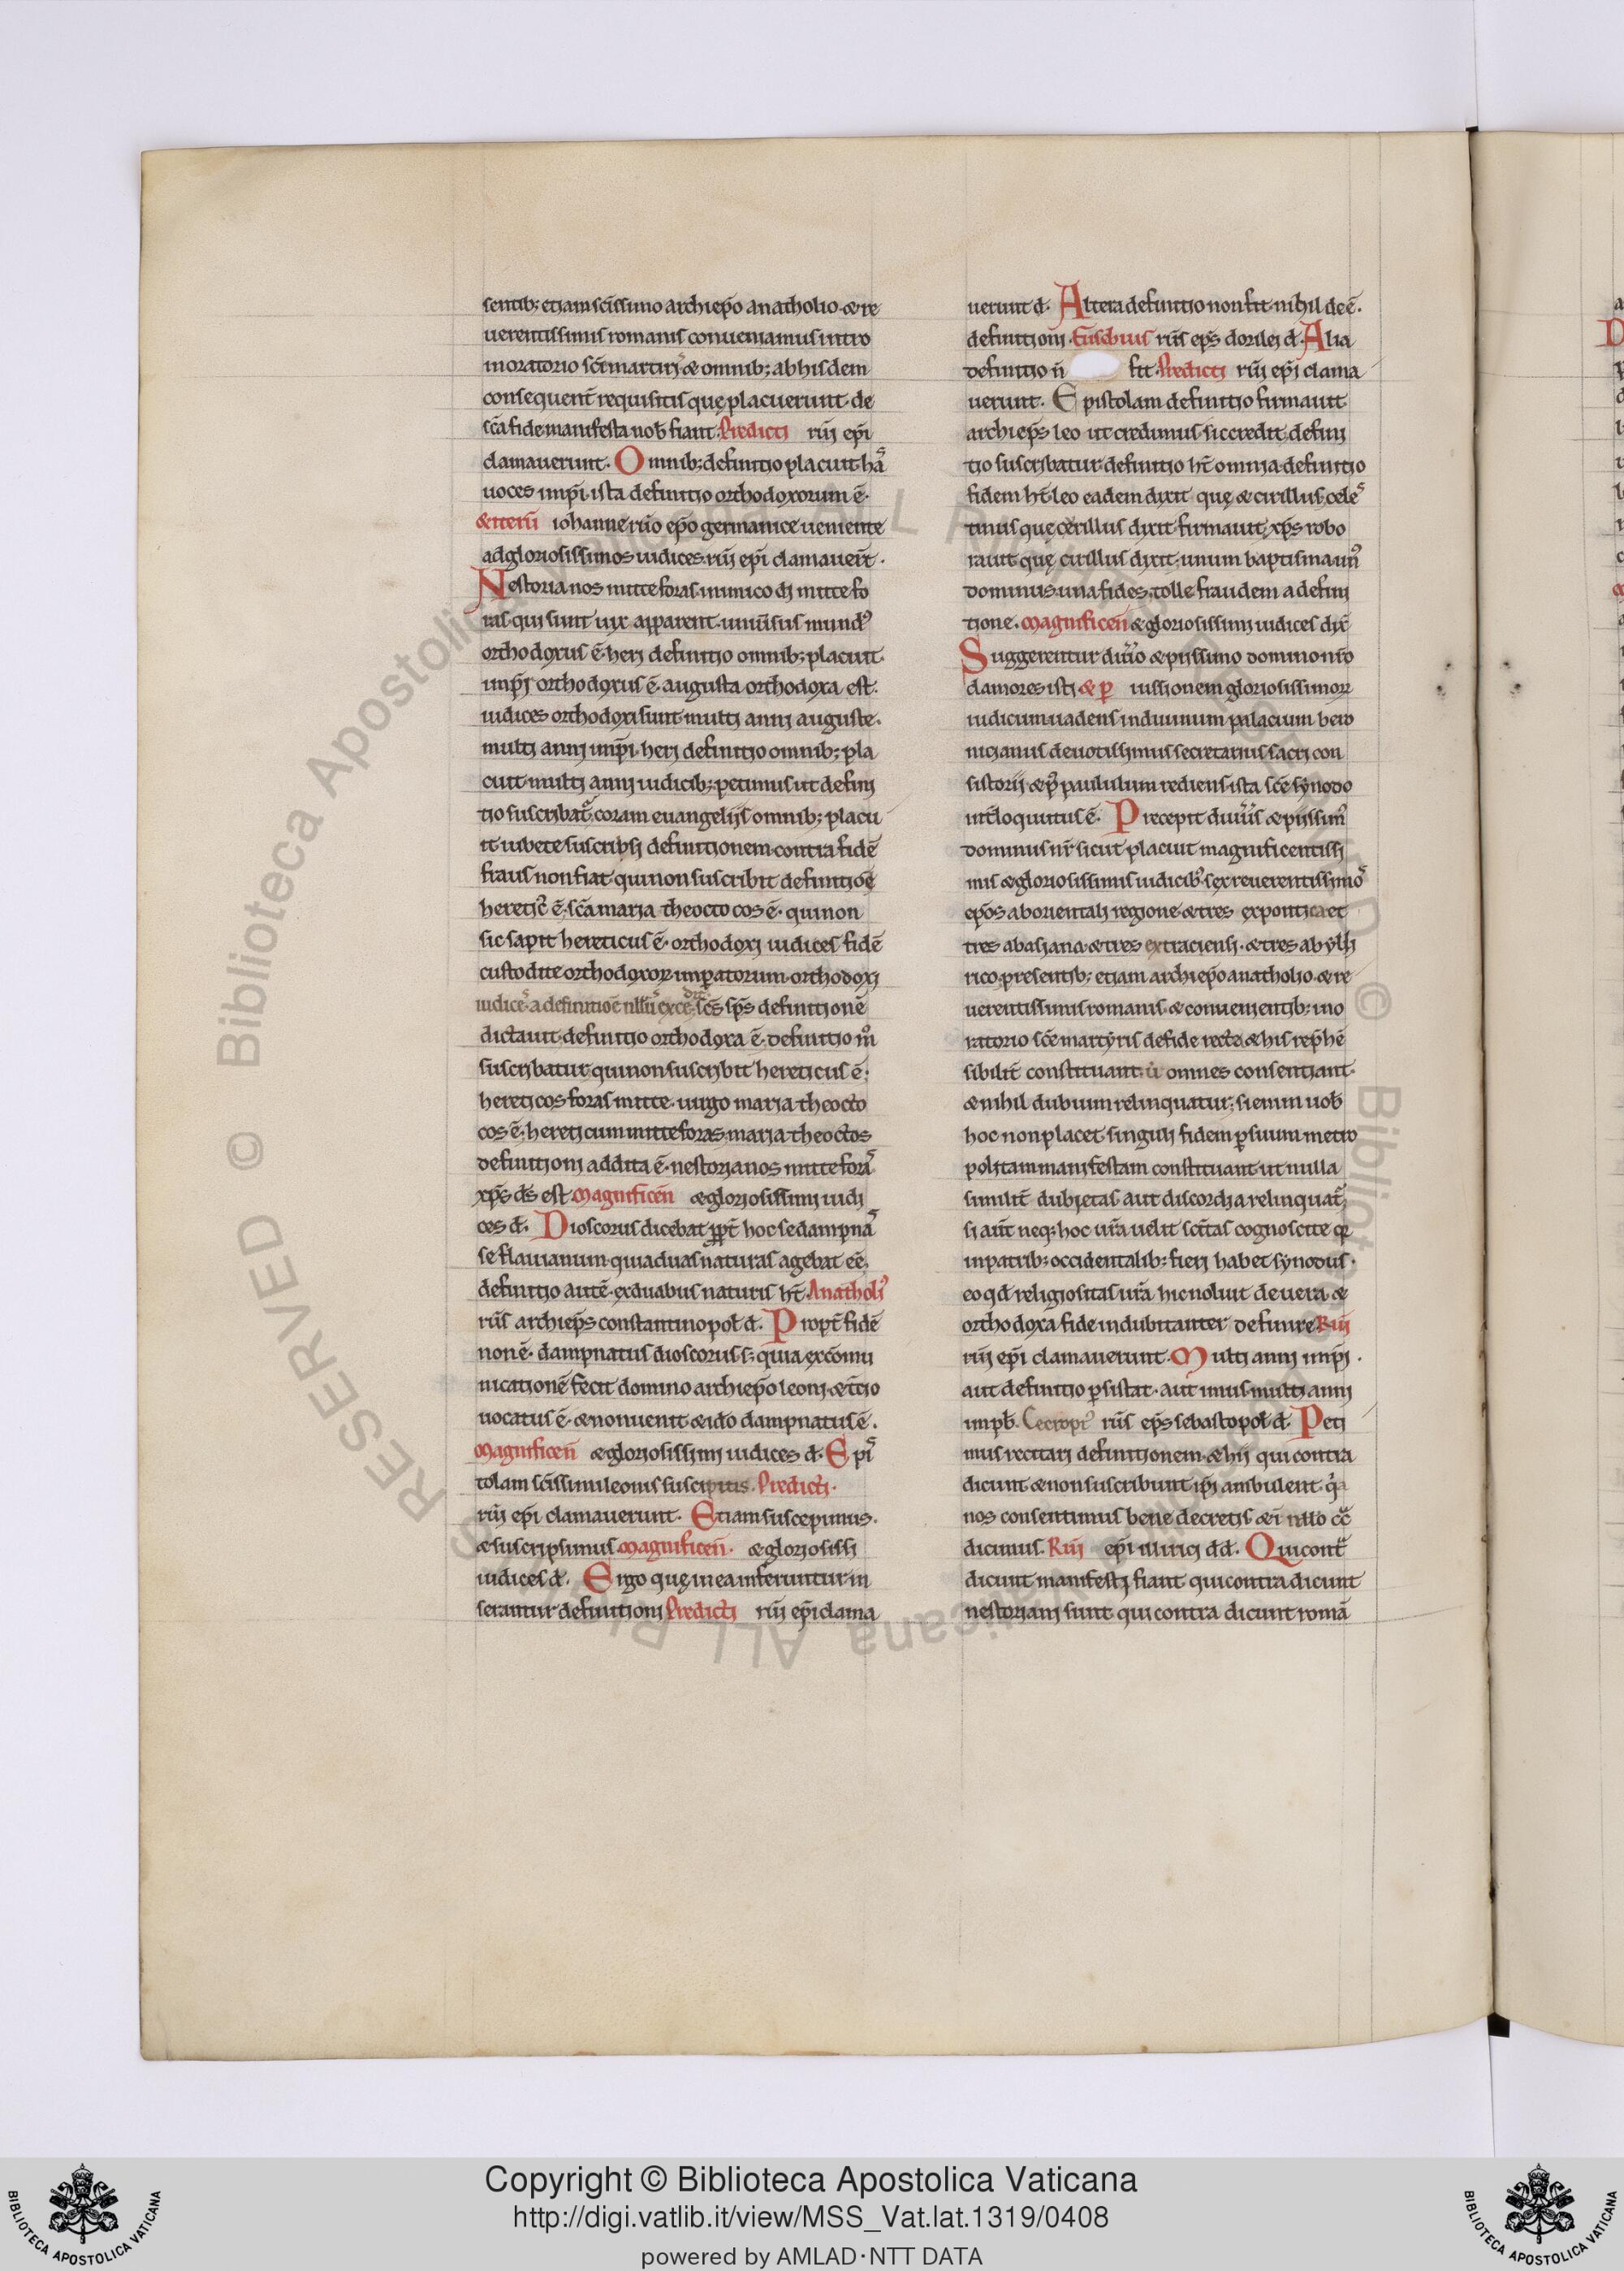 sentib; etiam sc̄issimo archiep̄o anatholio. & re
uerentissimis romanis conueniamus intro
inoratorio sc̄i martiris & omnib; ab hisdem
consequent̄ requisitis quę placuerunt de
sc̄a fide manifesta nob̄ fiant. Predicti rūi ep̄i
clamauerunt. Omnib; definitio placuit hā
uoces imp̄i. ista definitio orthodoxorum ē.
& iterū iohanne rūo ep̄o germanice ueniente
ad gloriosissimos iudices. rūi ep̄i clamauer̄t.
Nestorianos mitte foras. inimico di mitte fo
ras. qui sunt uix apparent. uniūsus mund᾽
orthodoxus ē. heri definitio omnib; placuit.
imp̄r orthodoxus ē. augusta orthodoxa est.
iudices orthodoxi sunt. multi anni auguste.
multi anni imp̄i. heri definitio omnib; pla
cuit. multi anni iudicib; petimus ut defini
tio suscribat᾽. coram euangeliis omnib; placu
it iubete suscribi definitionem. contra fidē
fraus non fiat. qui non suscribit definitiōe
heretic᾽ ē. sc̄a maria theoctocos ē. qui non
sic sapit hereticus ē. orthodoxi iudices fidē
custodite orthodoxor imperatorum. orthodoxi
sc̄s sp̄s definitionē
dictauit. definitio orthodoxa ē. definitio m̊
suscribatur. qui non suscribit hereticus ē.
hereticos foras mitte. uirgo maria theocto
cos ē. hereticum mitte foras. maria theoctos
definitioni addita ē. nestorianos mitte foras
xp̄s d̄s est. Magnificen̄ & gloriosissimi iudi
ces d̄. Dioscorus dicebat ppt̄ hoc se dampnas
se flauianum. quia duas naturas agebat eē.
definitio autē. ex duabus naturis ht̄. Anatholi᾽
rūs archiep̄s constantinopol̄ d̄. Propt̄ fidē
non ē. dampnatus dioscorus. s; quia excōmu
nicationē fecit domino archiep̄o leoni. & t̄cio
uocatus ē. & non uenit & ido dampnatus ē.
Magnificen̄ & gloriosissimi iudices d̄. Epis
tolam sc̄issimi leonis suscipitis. Predicti.
rūi ep̄i clamauerunt. Etiam suscepimus.
& suscripsimus. Magnificen̄. & gloriosissi
iudices d̄. Ergo quę in ea inferuntur in
serantur definitioni. Predicti rūi ep̄i clama
uerunt d̄. Altera definitio non fit. nihil dē ē.
definitioni. Eusebius rūs ep̄s dorilei d̄. Alia
definitio n̄ fit. Predicti rūi ep̄i clama
uerunt. Epistolam definitio firmauit
archiep̄s leo ut credimus. sic credit. defini
tio suscribatur. definitio ht̄ omnia. definitio
fidem ht̄. leo eadem dixit quę & cirillus. celes
tinus quę cerillus dixit firmauit. xp̄s robo
rauit quę cirillus dixit. unum baptisma un᾽
dominus una fides. tolle fraudem a defini
tione. Magnificen̄ & gloriosissimi iudices dix̄
Suggerentur diuīo & piissimo domino nr̄o
clamores isti. & p iussionem gloriosissimor
iudicum uadens in diuinum palacium bero
nicianus deuotissimus secretarius sacri con
sistorii. & p᾽ paululum rediens ista sc̄e synodo
int̄loquutus ē. Precepit diuius & piissim᾽
dominus nr̄ sicut placuit magnificentissi
mis & gloriosissimis iudicib᾽. sex reuerentissimos
ep̄os ab orientali regione. & tres ex pontica et
tres ab asiana. & tres ex traciensi. & tres ab ylli
rico. presentib; etiam archiep̄o anatholio. & re
uerentissimis romanis. & conuenientib; ino
ratorio sc̄e martyris de fide recte. & his rep̄hē
sibilit̄ constituant. omnes consentiant.
& nihil dubium relinquatur. si enim uob̄
hoc non placet. singuli fidem p suum metro
politam manifestam constituant. ut nulla
similit̄ dubietas aut discordia relinquat᾽
si aut̄ neq; hoc ur̄a uelit sc̄itas cognoscite qr
in patrib; occidentalib; fieri habet synodus.
eo qd̄ religiositas ur̄a hic noluit de uera &
orthodoxa fide indubitanter definire. Rūi
rūi ep̄i clamauerunt. Multi anni imp̄i.
aut definitio p̄sistat. aut imus. multi anni
imp̄b. Cecropi᾽ rūs ep̄s sebastopol̄ d̄. Peti
mus recitari definitionem. & hii qui contra
dicunt & non suscribunt ip̄i ambulent. q᾽a
nos consentimus bene decretis
dicimus. Rūi ep̄i illirici d̄d̄. Qui cont̄
dicunt manifesti fiant. qui contra dicunt
nestoriani sunt. qui contra dicunt romā
Copyright © Biblioteca Apostolica Vaticana
http://digi.vatlib.it/view/MSS_Vat.lat.1319/0408
powered by AMLAD·NTT DATA
BIBLIOTECA APOSTOLICA VATICANA
BIBLIOTECA APOSTOLICA VATICANA
© Biblioteca Apostolica Vaticana ALL RIGHTS RESERVED